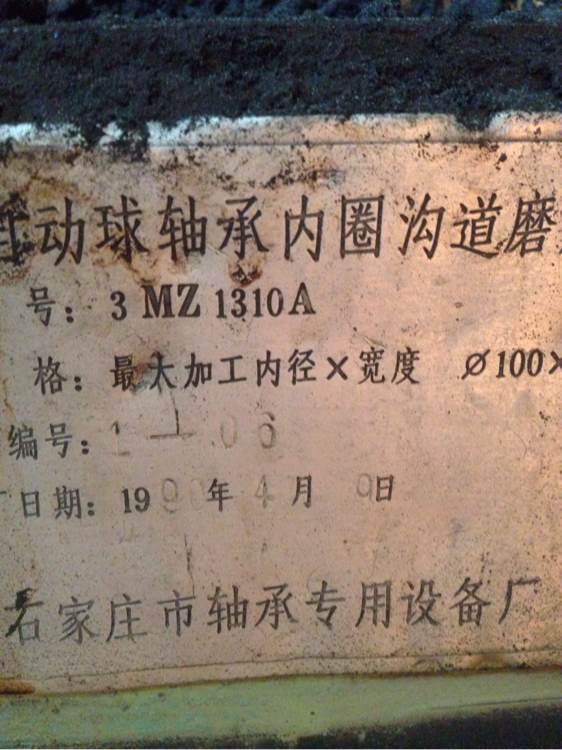 动球轴承内圈沟道磨
号：3 MZ 1310A
格：最大加工内径×宽度 Ø100×
编号：1—06
日期：199 年4月9日
石家庄市轴承专用设备厂